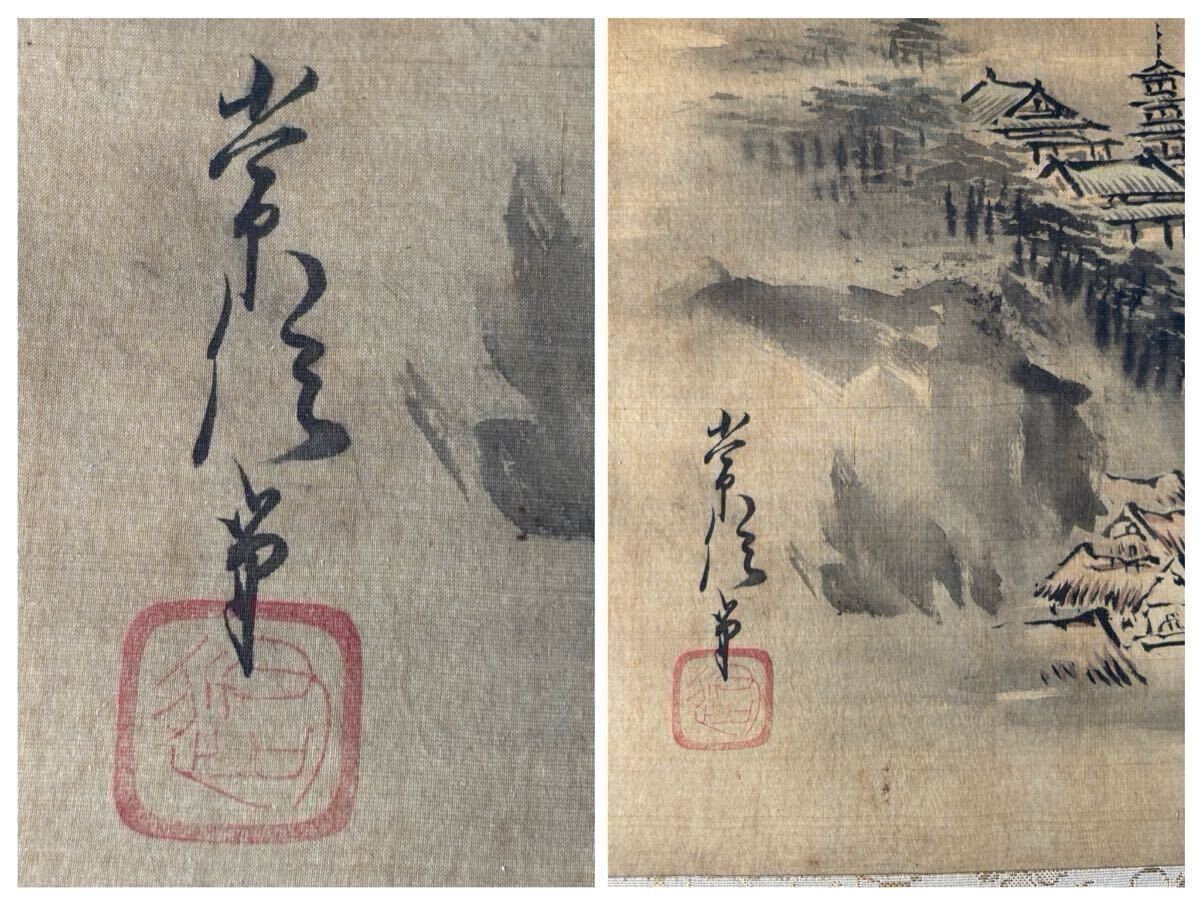 常信筆
常信筆